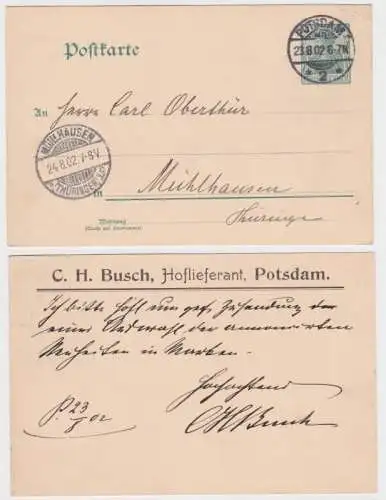 Postkarte
POTSDAM
23.8.02.6-7N.
* 2 *
An Herrn Carl Oberthür
MÜHLHAUSEN
24.8.02.7-8V.
* (THÜRINGEN) *
in
Mühlhausen
Thüringen
Wohnung
(Straße und Hausnummer)
C. H. Busch, Hoflieferant, Potsdam.
Ich bitte höfl um gefl. Zusendung der
einer Auswahl der annoncirten
Neuheiten in Marken.
Hochachtend
P. 23/8 02
CHBusch